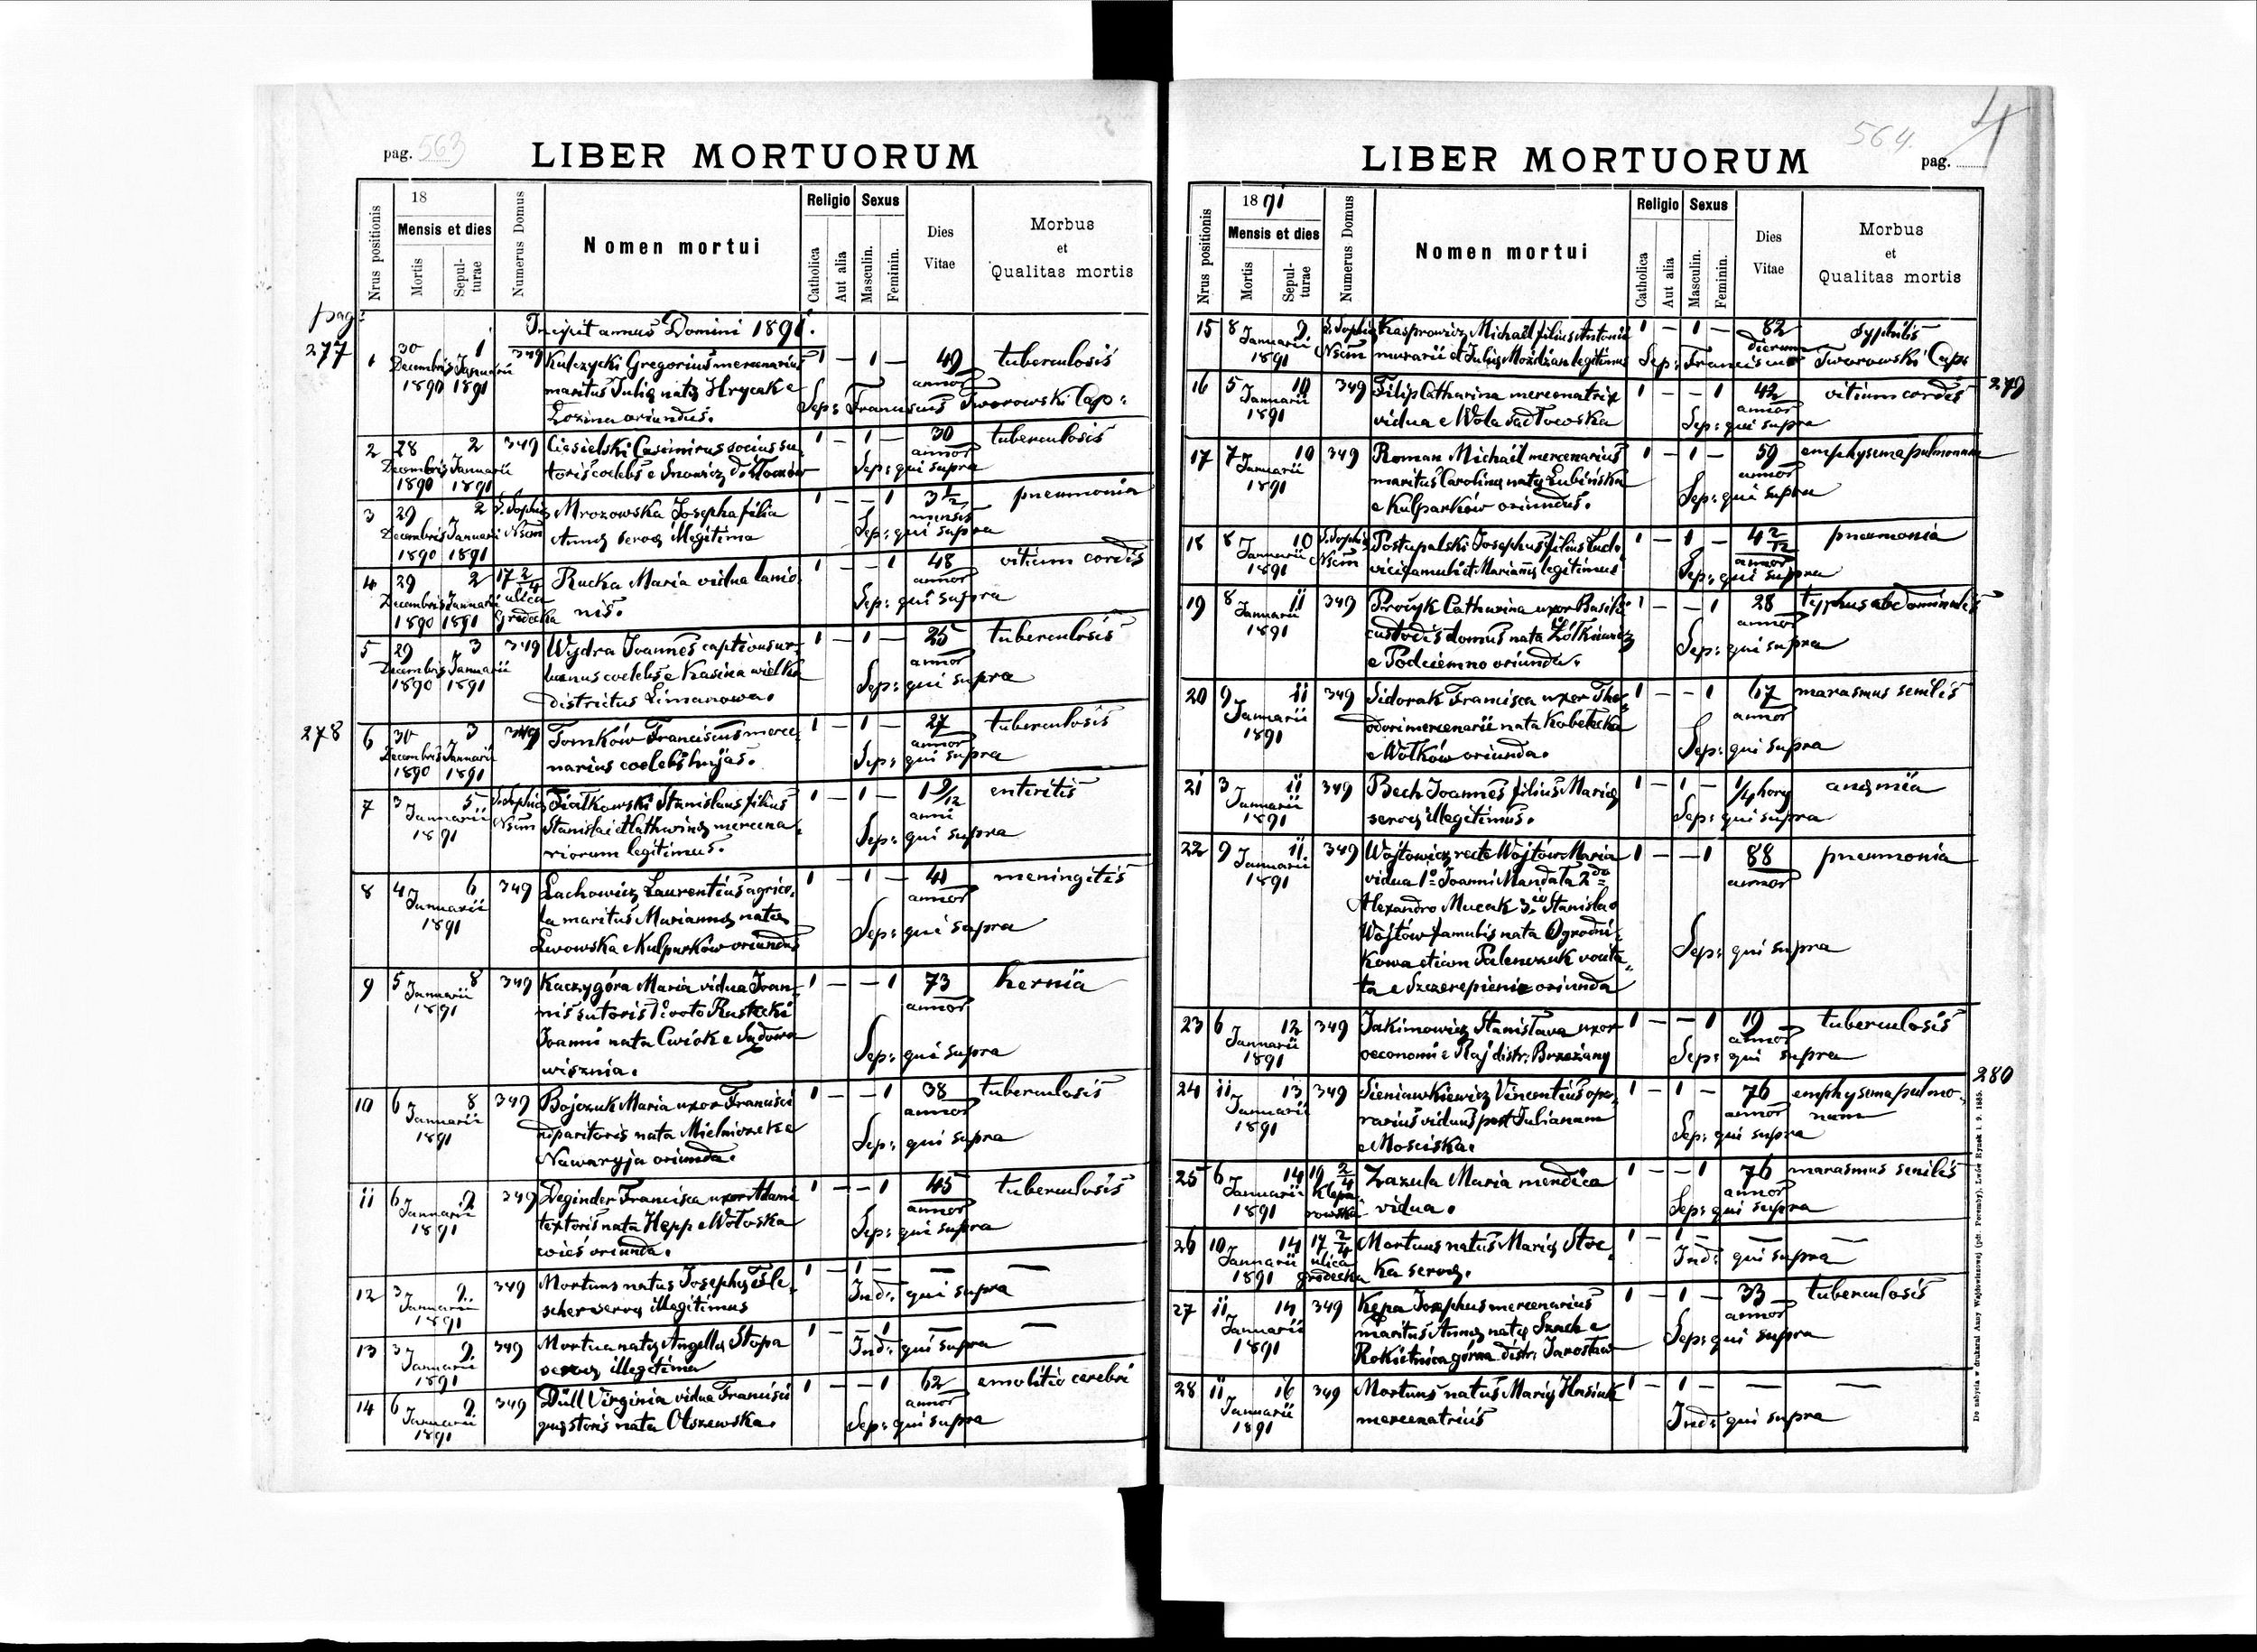 pag. 563
LIBER MORTUORUM
Nrus positionis
18
Mensis et dies
Mortis
Sepul-
turae
Numerus Domus
Nomen mortui
Religio
Catholica
Aut alia
Sexus
Masculin.
Feminin.
Dies
Vitae
Morbus
et
Qualitas mortis
pag:
Incipit annus Domini 1891.
277
1 30 1 349 Kulczycki Gregorius mercenarius 1 — 1 — 49 tuberculosis
Decembris Januarii maritus Julię natę Hrycak e annor
1890 1891 Łozina oriundus. Sep: Franciscus Tworowski Cap:
2 28 2 349 Ciesielski Casimirus socius su- 1 — 1 — 30 tuberculosis
Decembris Januarii toris coelebs e annor
1890 1891 Sep: qui supra
3 29 2 S. Sophię Mrozowska Josepha filia 1 — — 1 3 1/2 pneumonia
Decembris Januarii Nsem Annę servę illegitima mensis
1890 1891 Sep: qui supra
4 29 2 17 2/4 Rucka Maria vidua lanio 1 — — 1 48 vitium cordis
Decembris Januarii ulica nis. annor
1890 1891 Grodecka Sep: qui supra
5 29 3 349 Wydra Joannes captivus ur- 1 — 1 — 25 tuberculosis
Decembris Januarii banus coelebs e Kasina wielka annor
1890 1891 districtus Limanowa. Sep: qui supra
278
6 30 3 349 Tomków Franciscus merce- 1 — 1 — 27 tuberculosis
Decembris Januarii narius coelebs hujas. annor
1890 1891 Sep: qui supra
7 3 5 S. Sophię Fiałkowski Stanislaus filius 1 — 1 — 1 9/12 enteritis
Januarii Nsem Stanislai et Catharinę mercena- anni
1891 riorum legitimus. Sep: qui supra
8 4 6 349 Lachowicz Laurentius agrico- 1 — 1 — 41 meningitis
Januarii la maritus Mariannę natę annor
1891 Lwowska e Kulparków oriundus Sep: qui supra
9 5 8 349 Kaczygóra Maria vidua Joan- 1 — — 1 73 hernia
Januarii nis sutoris 1o voto Rustecki annor
1891 Joanni nata Cwiok e Sądowa Sep: qui supra
wisznia.
10 6 8 349 Bojczuk Maria uxor Francisci 1 — — 1 38 tuberculosis
Januarii aparitoris nata Mielniczek e annor
1891 Nawaryja oriunda. Sep: qui supra
11 6 9 349 Deginder Francisca uxor Adami 1 — — 1 45 tuberculosis
Januarii textoris nata Hepp e Wołoska annor
1891 wieś oriunda. Sep: qui supra
12 3 9 349 Mortuus natus Josephę Fisle- 1 — 1 — — —
Januarii scher servę illegitimus Ind: qui supra
1891
13 3 9 349 Mortua nata Angellę Stopa 1 — — 1 — —
Januarii servę illegitima Ind: qui supra
1891
14 6 9 349 Düll Virginia vidua Francisci 1 — — 1 62 emolitio cerebri
Januarii quęstoris nata Olszewska. annor
1891 Sep: qui supra
564. 4
LIBER MORTUORUM
pag.
Nrus positionis
1891
Mensis et dies
Mortis
Sepul-
turae
Numerus Domus
Nomen mortui
Religio
Catholica
Aut alia
Sexus
Masculin.
Feminin.
Dies
Vitae
Morbus
et
Qualitas mortis
15 8 9 S. Sophię Kasprowicz Michaël filius Antonii 1 — 1 — 82 Syphilis
Januarii Nsem murarii et Julię Możdżan legitimus dierum
1891 Sep: Franciscus Tworowski Cap:
279
16 5 10 349 Filip Catharina mercenatrix 1 — — 1 42 vitium cordis
Januarii vidua e Wola annor
1891 Sep: qui supra
17 7 10 349 Roman Michaël mercenarius 1 — 1 — 59 emphysema pulmonum
Januarii maritus Carolinę natę Łubińska annor
1891 e Kulparków oriundus. Sep: qui supra
18 8 10 S. Sophię Postupalski Josephus filius Ludo- 1 — 1 — 4 2/12 pneumonia
Januarii Nsem vici famuli et Mariannę legitimus annor
1891 Sep: qui supra
19 8 11 349 Procyk Catharina uxor Basilii 1 — — 1 28 typhus abdominalis
Januarii custodis domus nata Żółkiewicz annor
1891 e Podciemno oriunda. Sep: qui supra
20 9 11 349 Sidorak Francisca uxor Theo- 1 — — 1 67 marasmus senilis
Januarii dori mercenarii nata Kobelecka annor
1891 e Wołków oriunda. Sep: qui supra
21 3 11 349 Bech Joannes filius Marię 1 — 1 — 1/4 horę anęmia
Januarii servę illegitimus. Sep: qui supra
1891
22 9 11 349 Wojtowicz recte Wojtów Maria 1 — — 1 88 pneumonia
Januarii vidua 1o Joanni Mandata 2do annor
1891 Alexandro Mucak 3io Stanislao
Wojtów famulis nata Ogrodni-
kowa etiam Palenczuk vocita- Sep: qui supra
ta e Szczerepienie oriunda
23 6 12 349 Jakimowicz Stanisława uxor 1 — — 1 19 tuberculosis
Januarii oeconomi e Raj distr: Brzeżany annor
1891 Sep: qui supra
280
24 11 13 349 Sieniawkiewicz Vincentius ope- 1 — 1 — 76 emphysema pulmo-
Januarii rarius viduus post Julianam annor num
1891 e Mosciska. Sep: qui supra
25 6 14 19 2/4 Zazula Maria mendica 1 — — 1 76 marasmus senilis
Januarii Klepa- vidua. annor
1891 rowska Sep: qui supra
26 10 14 17 2/4 Mortuus natus Marię Stoc- 1 — 1 — — —
Januarii ulica ka servę. Ind: qui supra
1891 Grodecka
27 11 14 349 Kępa Josephus mercenarius 1 — 1 — 33 tuberculosis
Januarii maritus Annę natę Szach e annor
1891 Rokietnica górna distr: Jarosław Sep: qui supra
28 11 16 349 Mortuus natus Marię Hasiuk 1 — 1 — — —
Januarii mercenatricis Ind: qui supra
1891
Do nabycia w drukarni Anny Wajdowiczowej (pdt. Poremby), Lwów Rynek l. 9. 1885.